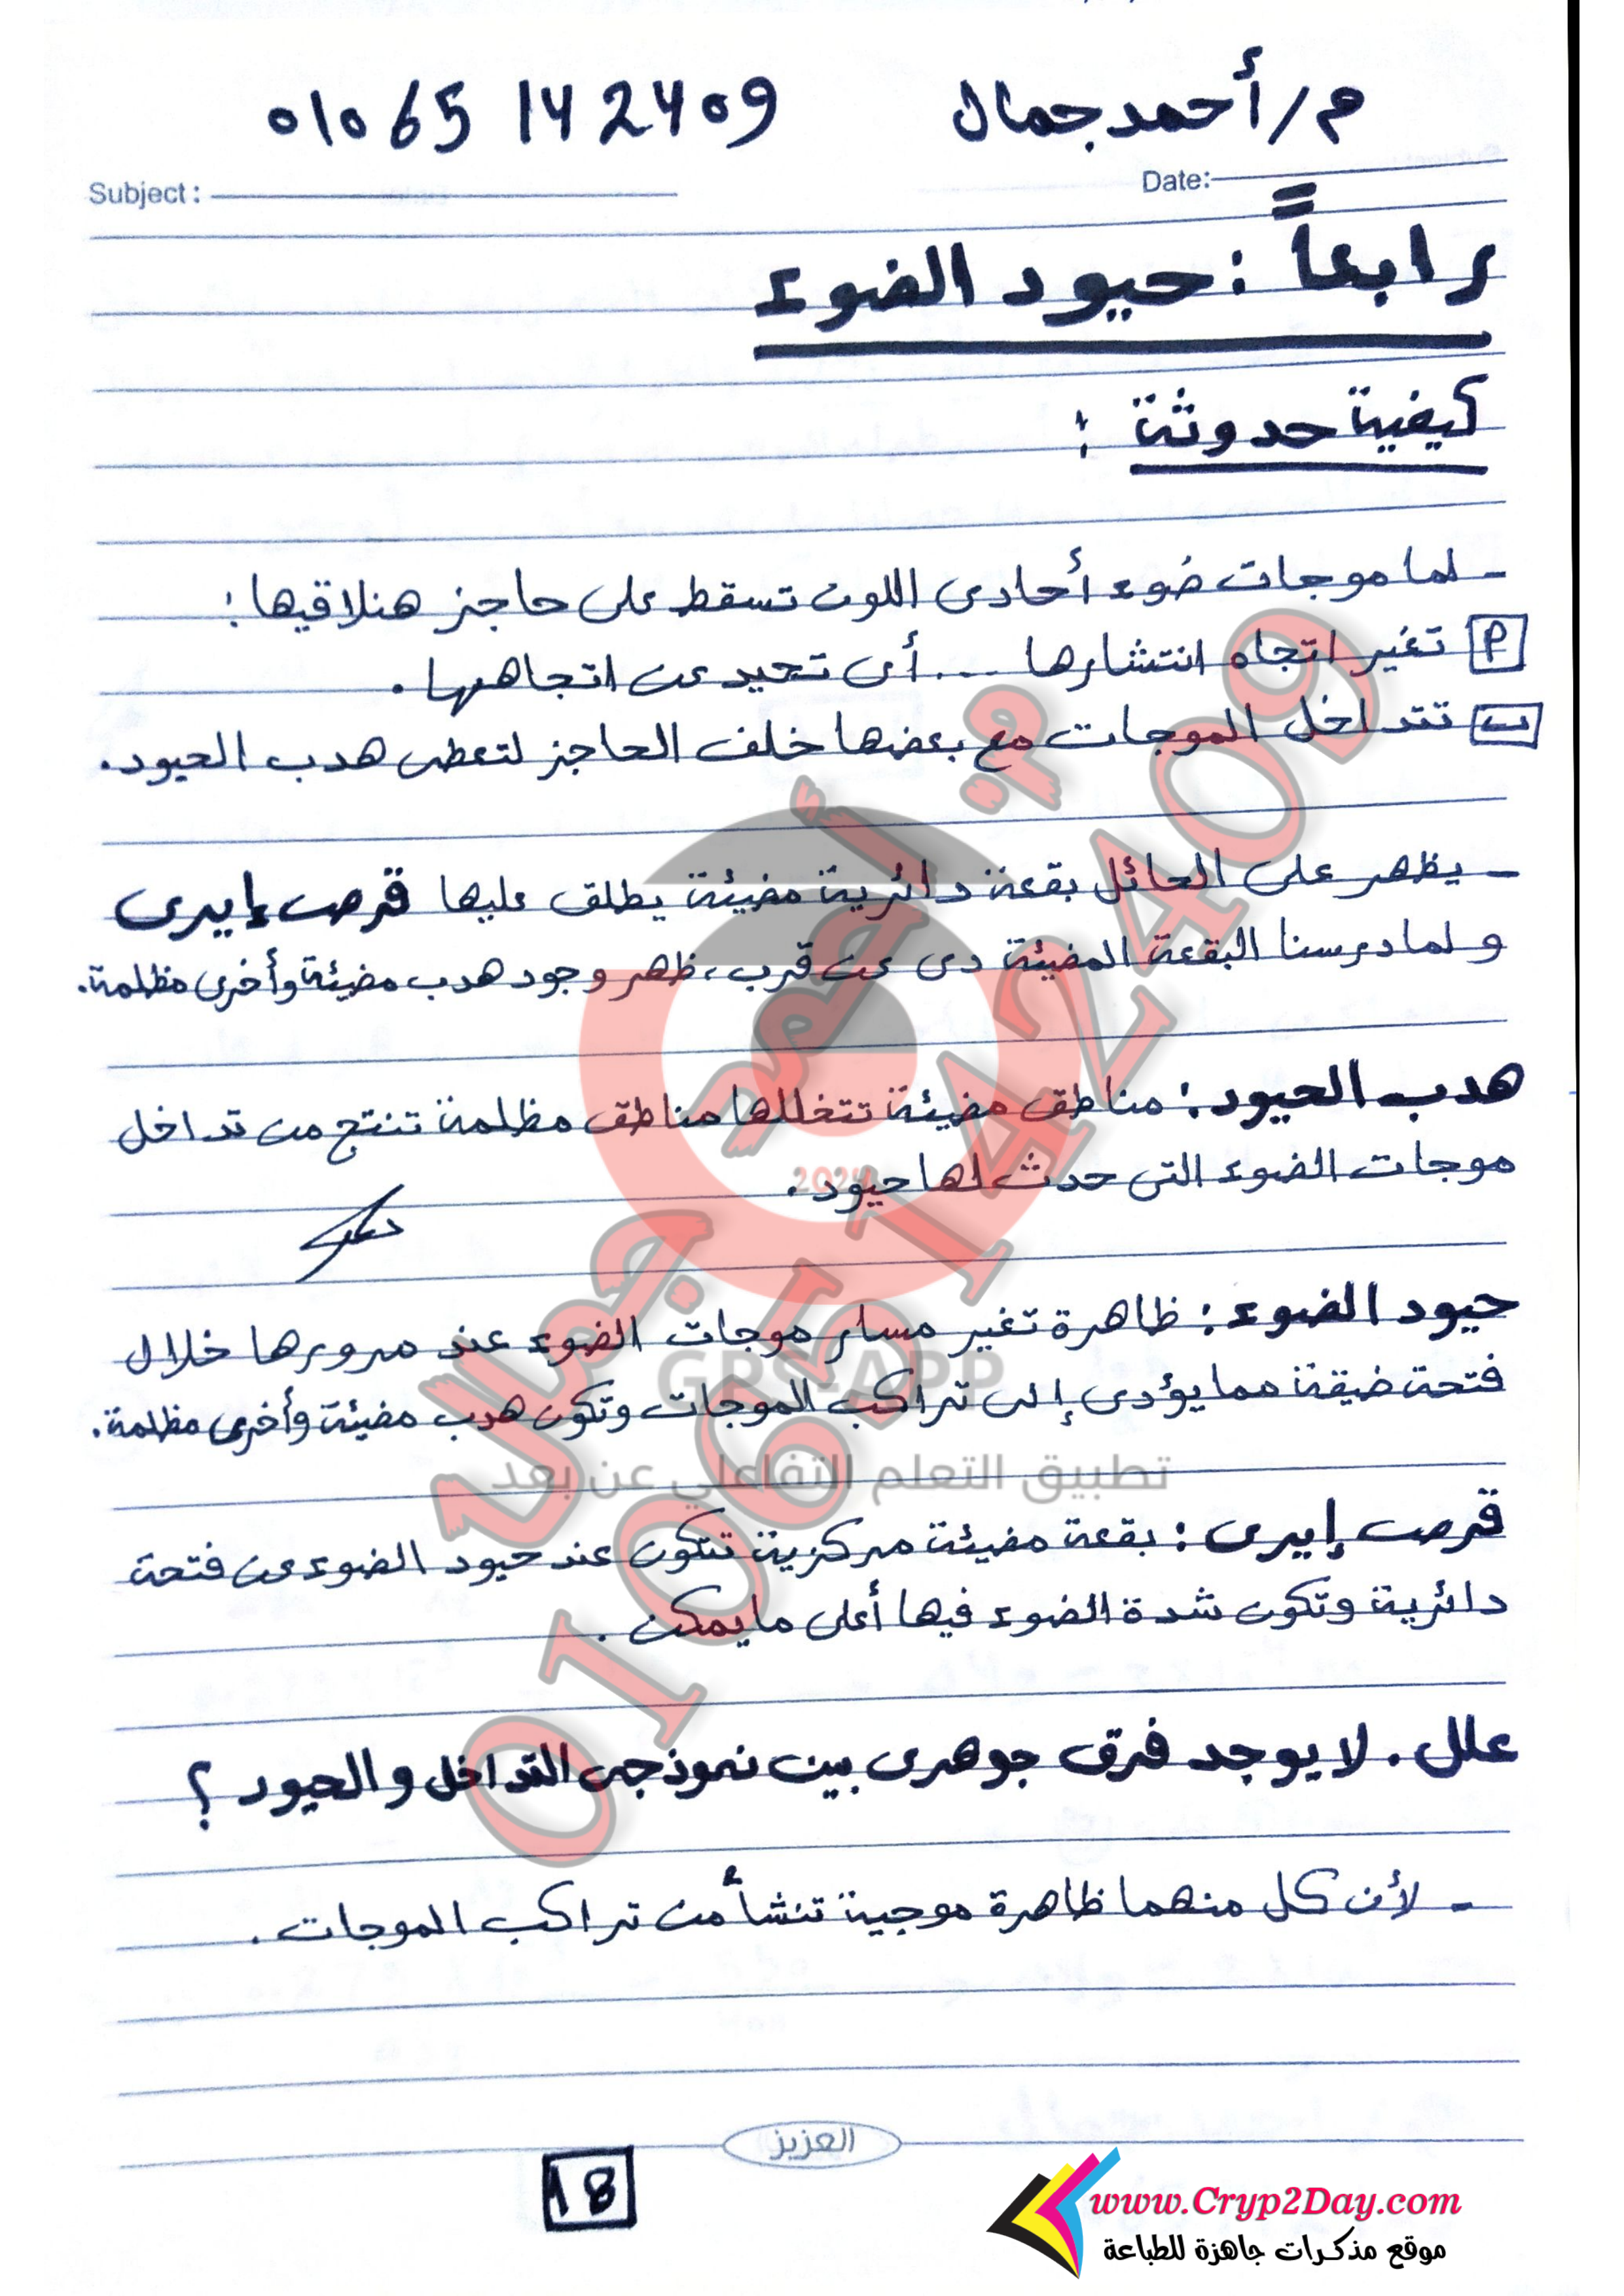 م/أحمد جمال 01065142409
Subject : Date:
رابعاً : حيود الضوء
كيفية حدوثة :
- لما موجات ضوء أحادى اللون تسقط على حاجز هنلاقيها :
أ تغير اتجاه انتشارها ... أى تحيد عن اتجاهها .
ب تتداخل الموجات مع بعضها خلف الحاجز لتعطى هدب الحيود .
- يظهر على الحائل بقعة دائرية مضيئة يطلق عليها قرص إيرى
ولما درسنا البقعة المضيئة دى عن قرب ، ظهر وجود هدب مضيئة وأخرى مظلمة .
هدب الحيود : مناطق مضيئة تتخللها مناطق مظلمة تنتج من تداخل
موجات الضوء التى حدث لها حيود .
حيود الضوء : ظاهرة تغير مسار موجات الضوء عند مرورها خلال
فتحة ضيقة مما يؤدى إلى تراكب الموجات وتكون هدب مضيئة وأخرى مظلمة .
قرص إيرى : بقعة مضيئة مركزية تتكون عند حيود الضوء عن فتحة
دائرية وتكون شدة الضوء فيها أعلى ما يمكن .
علل . لا يوجد فرق جوهرى بين نموذجى التداخل والحيود ؟
- لأن كل منهما ظاهرة موجية تنشأ من تراكب الموجات .
العزيز
18
www.Cryp2Day.com
موقع مذكرات جاهزة للطباعة
م. أحمد جمال
01065142409
2024
GPS-APP
تطبيق التعلم التفاعلي عن بعد